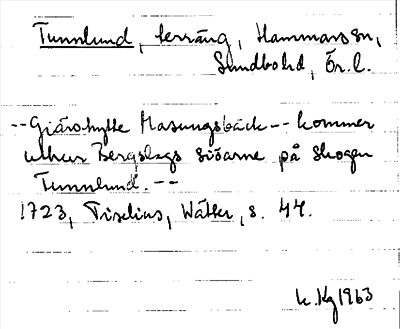 Tunnlund, terräng, Hammarssn,
Sundbohd, Ör. l.
-- Giärahytte Masungsbäck -- kommer
uthur Bergslags Siöarne på skogen
Tunnlund. --
1723, Tiselius, Wätter, s. 44.
K. Kg 1963